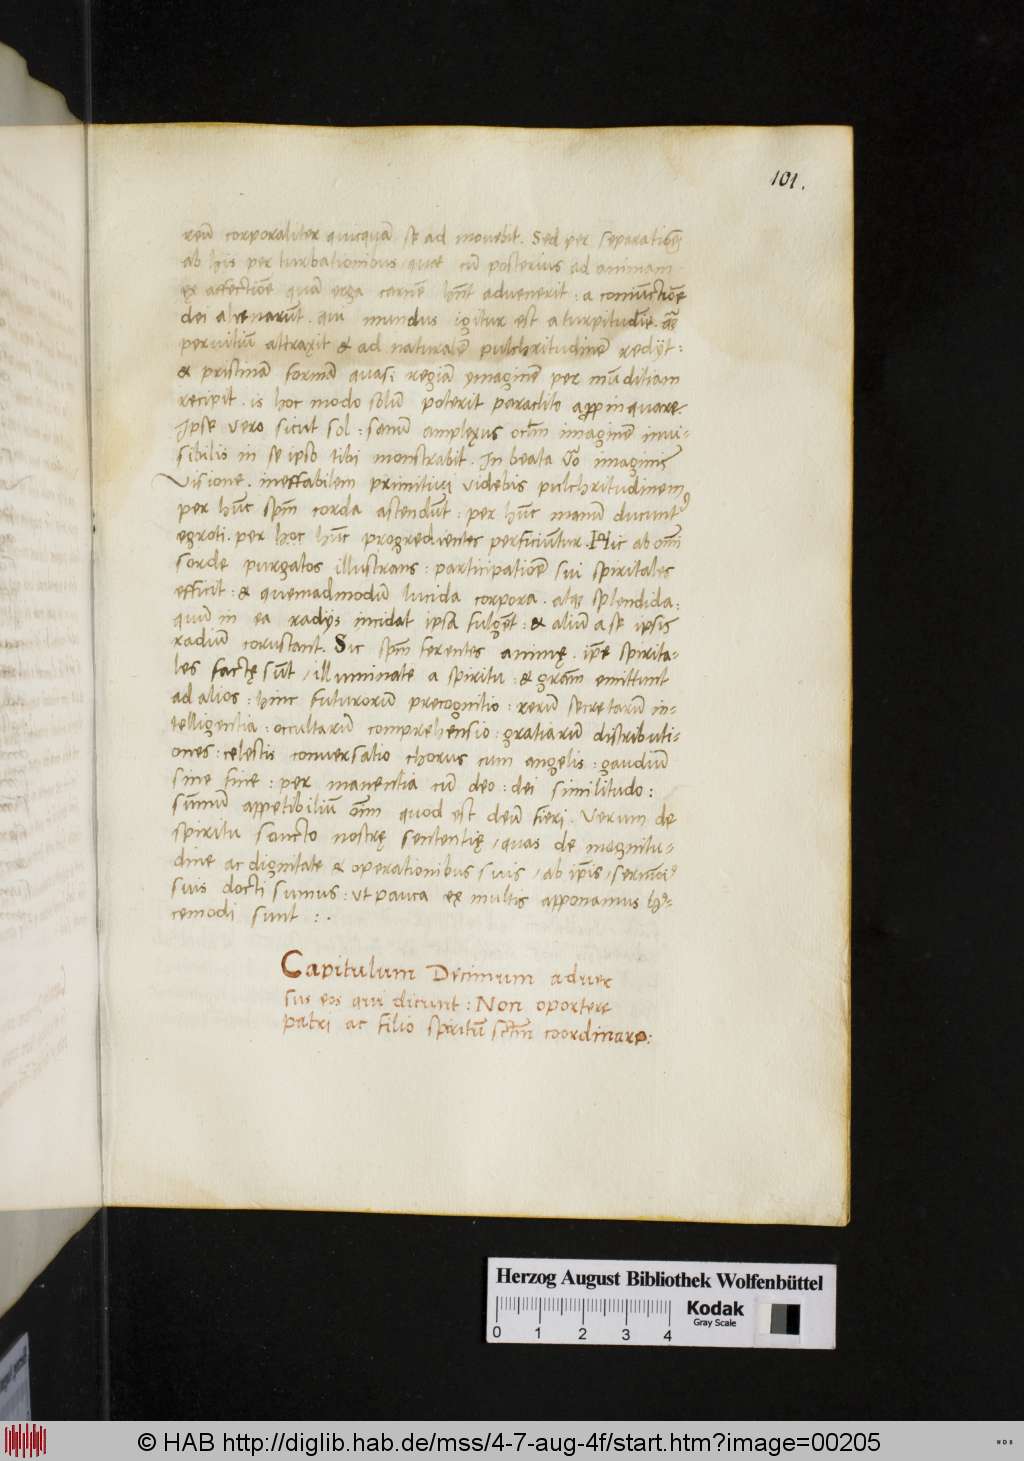 101.
reũ corporaliter quicquã se ad mouebit. Sed per separatiõẽ
ab his per turbationibus quae cũ posterius ad animam
ex affectiõe quã erga carnẽ hñt aduenerit : a coniũctiõe
dei alienarũt. qui mundus igitur est a turpitudĩe. quã
per uitiũ attraxit & ad naturalẽ pulchritudinẽ redijt :
& pristinã formã quasi regiã ymaginẽ per mũditiam
recipit. is hoc modo solũ poterit paraclito appinquare.
Ipse uero sicut sol : sanũ amplexus oclm imaginẽ inui-
sibilis in se ipso tibi monstrabit. In beata uo imaginis
uisione. ineffabilem primitiui uidebis pulchritudinem
per hũc spm corda astendũt : per hũc manu ducunt
egroti. per hoc hũc progredientes perficiũtur. Hic ab omi
sorde purgatos illustrans : participatiõe sui spiritales
efficit : & quemadmodũ lucida corpora. atque splendida :
quũ in ea radijs incidat ipsa fulgẽt : & aliũ a se ipsis
radiũ coruscant. Sic spm ferentes animę. ipe spirita-
les factę sũt / illuminate a spiritu : & gram emittunt
ad alios : hinc futurorũ precognitio : rerũ secretarũ in-
telligentia : occultarũ comprehensio : gratiarũ distributi-
ones : celestis conuersatio chorus cum angelis : gaudiũ
sine fine : per manentia cũ deo : dei similitudo :
sũmũ appetibiliũ oĩm quod est deũ fieri. Verum de
spiritu sancto nostrę sententię / quas de magnitu-
dine ac dignitate & operationibus suis / ab ipis / sermõi
suis docti sumus : ut pauca ex multis apponamus hu-
cemodi sunt : .
Capitulum Decimum aduer
sus eos qui dicunt : Non oportere
patri ac filio spiritũ sctm coordinare :
Herzog August Bibliothek Wolfenbüttel
0 1 2 3 4
Kodak
Gray Scale
© HAB http://diglib.hab.de/mss/4-7-aug-4f/start.htm?image=00205